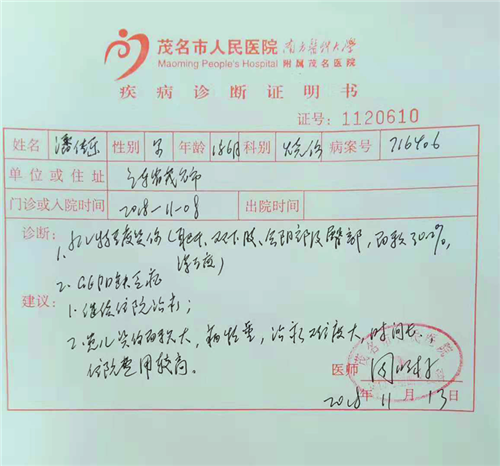 茂名市人民医院 南方医科大学
Maoming People's Hospital 附属茂名医院
疾病诊断证明书
证号：1120610
姓名 潘佳乐 性别 男 年龄 1岁6月 科别 烧伤 病案号 716406
单位或住址 广东省茂名市
门诊或入院时间 2018-11-08 出院时间
诊断：1. 热液特重度烫伤（躯干、双下肢、会阴部及臀部，面积30.0%，深II度）
2. G6PD缺乏症
建议：1. 继续住院治疗；
2. 患儿烫伤面积大，病情重，治疗难度大，时间长，
住院费用较高。
医师
2018年11月13日